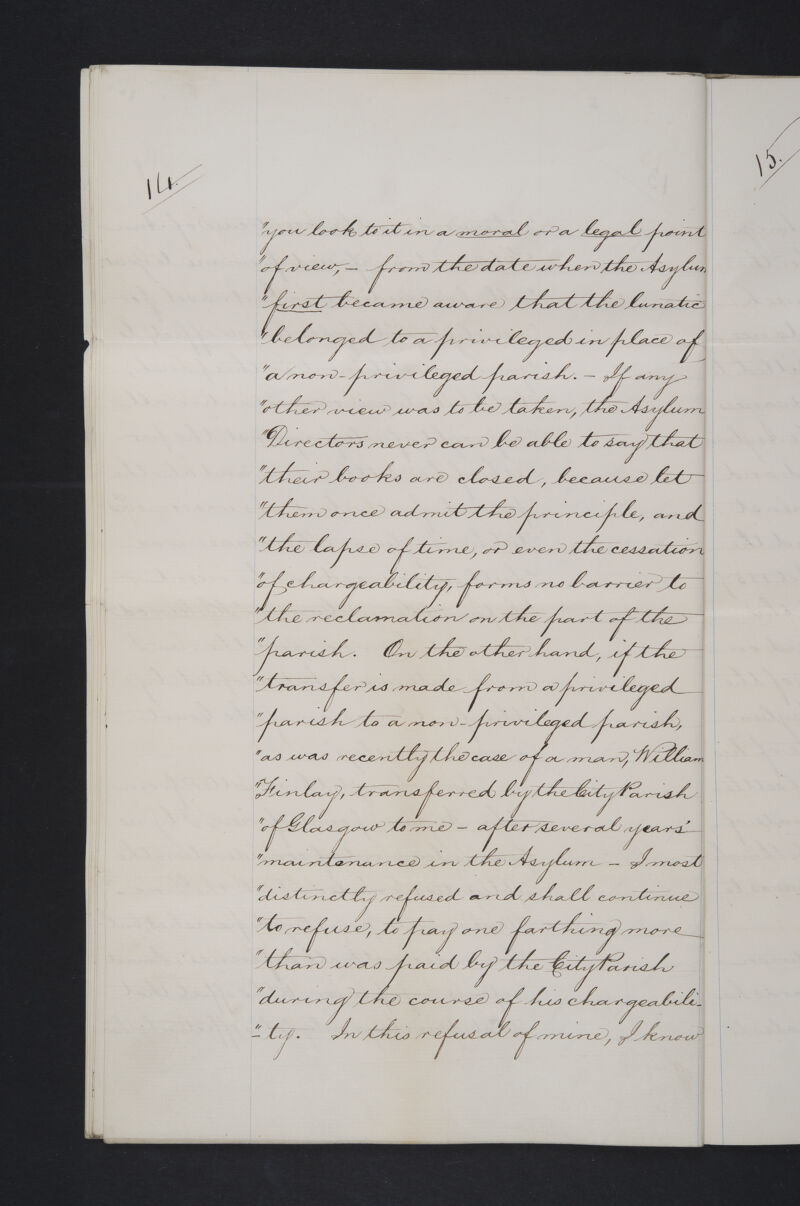 14.
15.
"you look to it in a moral or a legal point
"of view, – from the date when the Asylum
"first became aware that the lunatic
"belonged to a privileged in place of
"a non-privileged parish. – If any
"other view was to be taken, the Asylum
"Directors never can be able to say that
"their books are closed, because let
"them once admit the principle, and
"the lapse of time, or even the cessation
"of chargeability, forms no barrier to
"the reclamation on the part of the
"parish. On the other hand, if the
"transfer is made from a privileged
"parish to a non-privileged parish,
"as was recently the case of a man, William
"Finlay, transferred by the City Parish
"of Glasgow to me – after several years'
"maintenance in the Asylum – I most
"distinctly refused and shall continue
"to refuse, to pay one farthing more
"than was paid by the City Parish
"during the course of his chargeabili-
"-ty. In this refusal of mine, I know